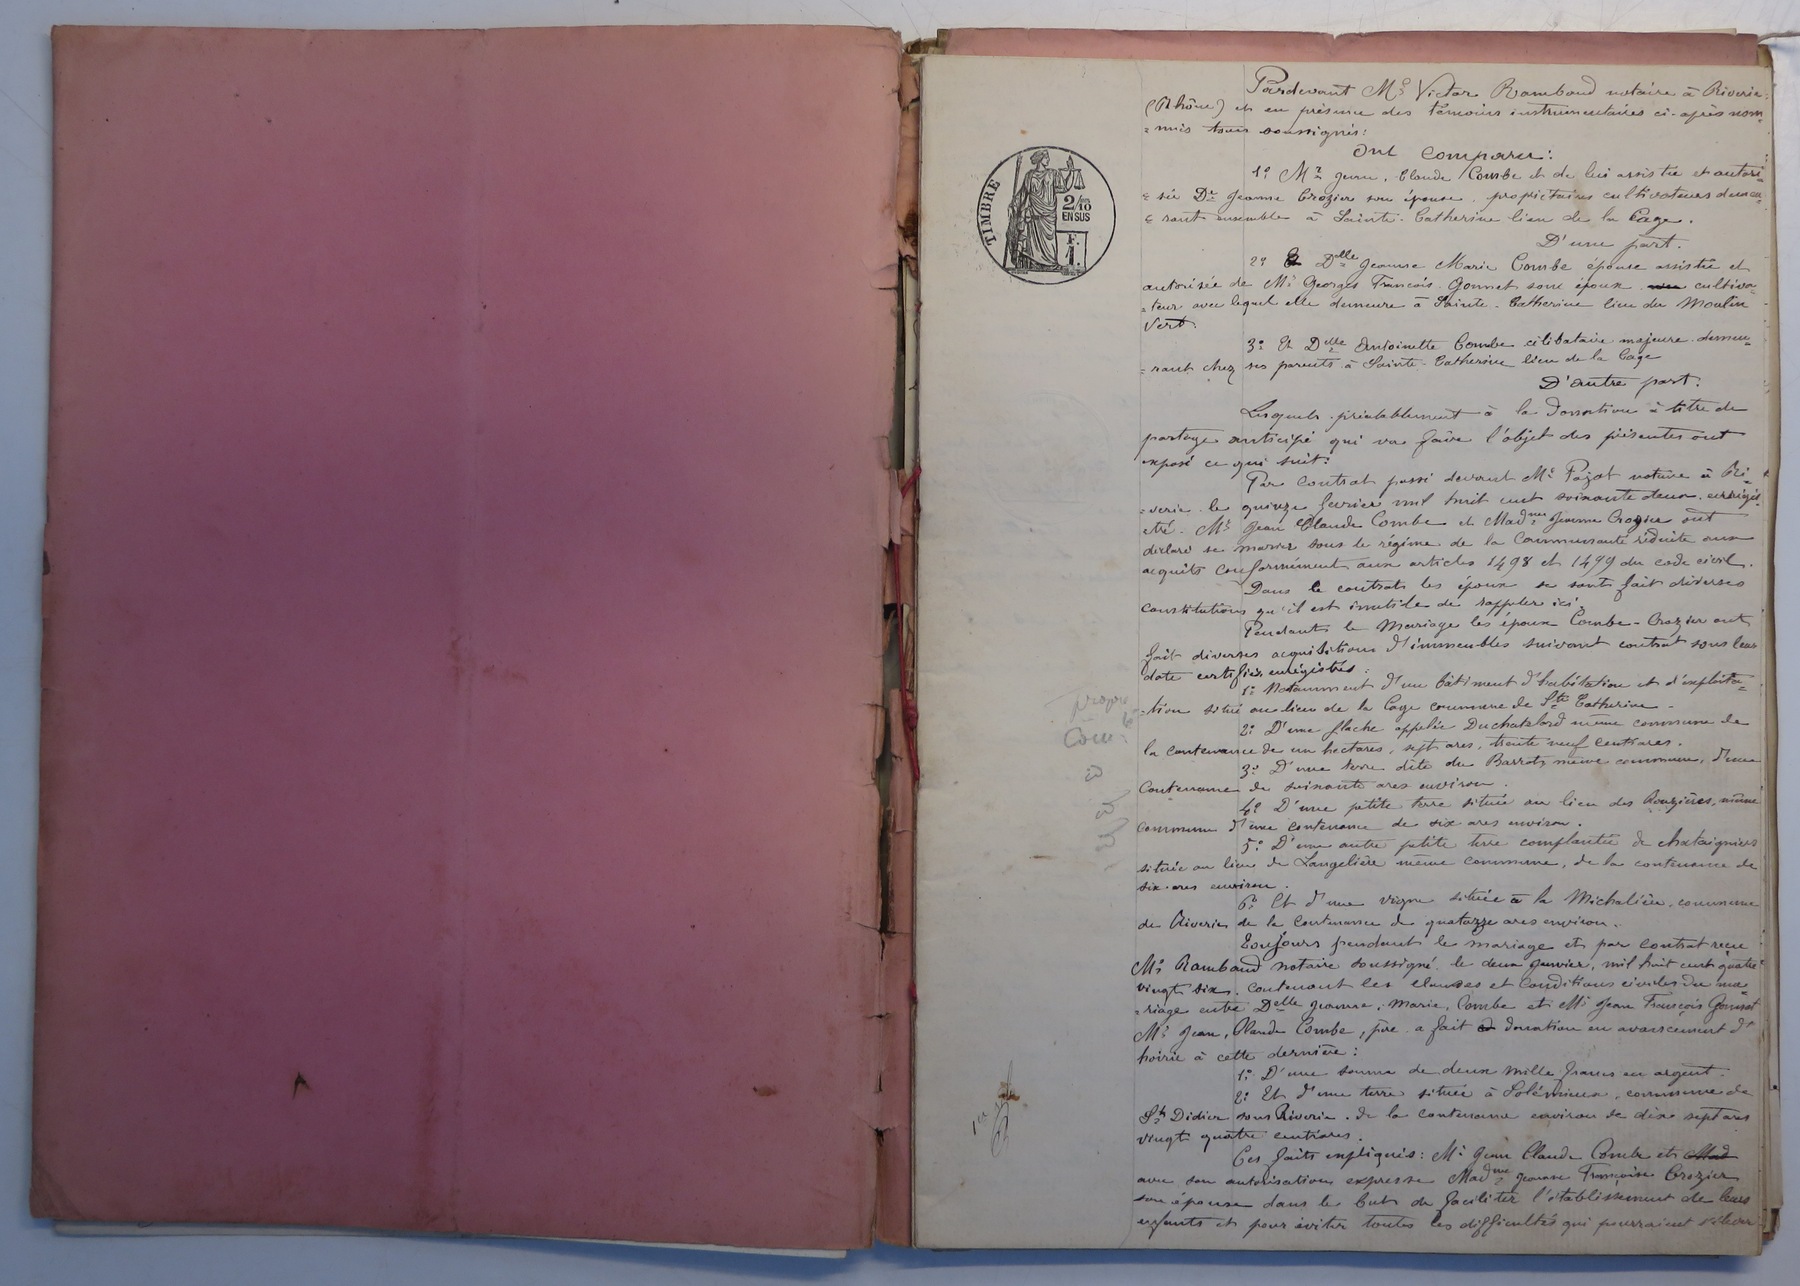 TIMBRE
2/10
EN SUS
F.
1.
Pardevant Me Victor Rambaud notaire à Riverie
(Rhône) et en présence des témoins instrumentaires ci-après nom=
=més tous soussignés:
Ont comparu:
1o Mr Jean, Claude Combe et de lui assistée et autori=
=sée De Jeanne Crozier son épouse, propriétaires cultivateurs demeu=
=rant ensemble à Sainte-Catherine lieu de la Cage.
D'une part.
2o Delle Jeanne Marie Combe épouse assistée et
autorisée de Mr Georges François Gonnet son époux cultiva=
=teur avec lequel elle demeure à Sainte-Catherine lieu du Moulin
Vert.
3o Et Delle Antoinette Combe célibataire majeure demeu=
=rant chez ses parents à Sainte-Catherine lieu de la Cage
D'autre part.
Lesquels préalablement à la Donation à titre de
partage anticipé qui va faire l'objet des présentes ont
exposé ce qui suit:
Par contrat passé devant Me notaire à Ri=
=verie le quinze février mil huit cent soixante deux, enregis=
=tré. Mr Jean Claude Combe et Madme Jeanne Crozier ont
déclaré se marier sous le régime de la Communauté réduite aux
acquêts conformément aux articles 1498 et 1499 du code civil.
Dans le contrat les époux se sont fait diverses
constitutions qu'il est inutile de rappeler ici.
Pendant le Mariage les époux Combe-Crozier ont
fait diverses acquisitions d'immeubles suivant contrat sous leur
date certifiés enregistrés:
1o Notamment d'un bâtiment d'habitation et d'exploita=
=tion situé au lieu de la Cage commune de Ste Catherine.
2o D'une appelée même commune de
la contenance de un hectares, sept ares, trente neuf centiares.
3o D'une terre dite du Barrot, même commune, d'une
Contenance de soixante ares environ.
4o D'une petite terre située au lieu des même
commune d'une contenance de six ares environ.
5o D'une autre petite terre complantée de chataigniers
située au lieu de Langelière même commune, de la contenance de
six ares environ.
6o Et d'une vigne située à la Michalière, commune
de Riverie de la contenance de quatorze ares environ.
Toujours pendant le mariage et par contrat reçu
Me Rambaud notaire soussigné le deux janvier, mil huit cent quatre
vingt six, contenant les clauses et conditions civiles du ma=
=riage entre Delle Jeanne, Marie, Combe et Mr Jean François Gonnet
Mr Jean, Claude Combe, père a fait donation en avancement d'
hoirie à cette dernière:
1o D'une somme de deux mille francs en argent.
2o Et d'une terre située à Solémieux, commune de
St Didier sous Riverie, de la contenance environ de dix sept ares
vingt quatre centiares.
Ces faits expliqués: Mr Jean Claude Combe et
avec son autorisation expresse Madme Jeanne Françoise Crozier
son épouse dans le but de faciliter l'établissement de leurs
enfants et pour éviter toutes les difficultés qui pourraient s'élever